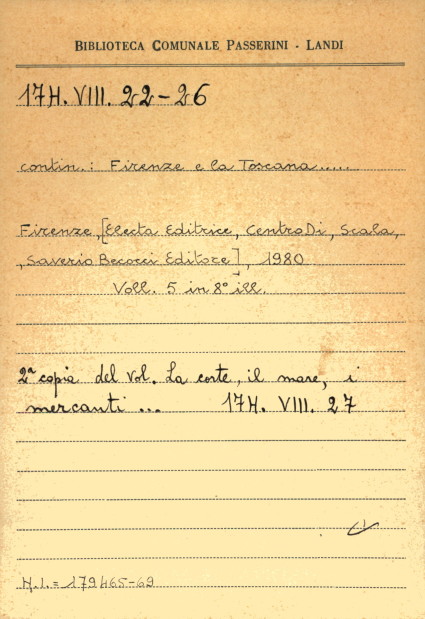 BIBLIOTECA COMUNALE PASSERINI - LANDI
17H. VIII. 22-26
contin.: Firenze e la Toscana.....
Firenze, [Electa Editrice, Centro Di, Scala,
, Saverio Becocci Editore], 1980
Voll. 5 in 8° ill.
2ª copia del vol. La corte, il mare, i
mercanti ... 17H. VIII. 27
N.I.= 179465-69